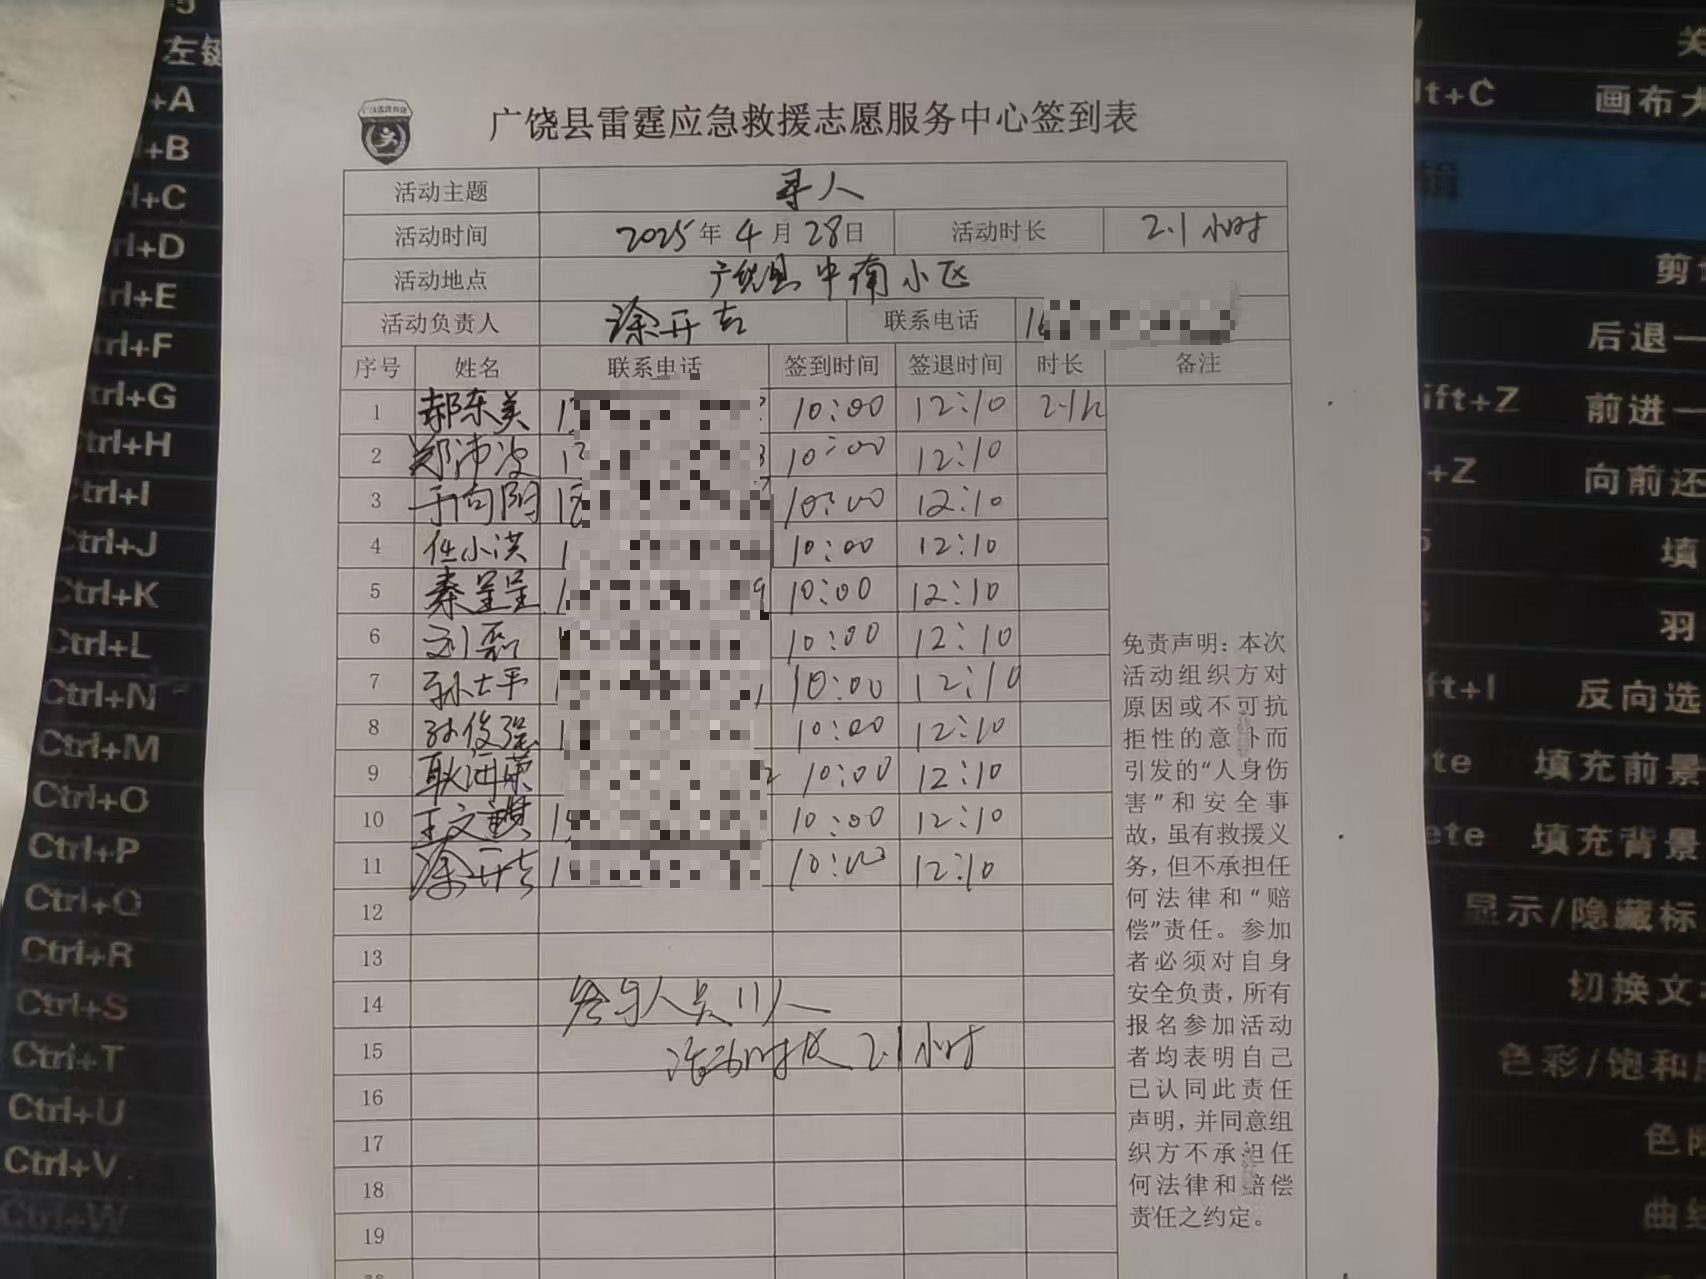 广饶县雷霆应急救援志愿服务中心签到表
活动主题 寻人
活动时间 2025年4月28日 活动时长 2.1小时
活动地点 广饶县中南小区
活动负责人 涂开吉 联系电话 1
序号 姓名 联系电话 签到时间 签退时间 时长 备注
1 郝东美 1 10:00 12:10 2.1h
2 郑沛波 1 10:00 12:10
3 于向阳 1 10:00 12:10
4 任小洪 1 10:00 12:10
5 秦呈呈 1 9 10:00 12:10
6 刘 10:00 12:10
7 孙士平 1 10:00 12:10
8 孙俊强 1 10:00 12:10
9 耿 荣 2 10:00 12:10
10 王文 1 10:00 12:10
11 涂开吉 1 10:00 12:10
12
13
14 参与人员11人
15 活动时长2.1小时
16
17
18
19
免责声明：本次
活动组织方对
原因或不可抗
拒性的意外而
引发的“人身伤
害”和安全事
故，虽有救援义
务，但不承担任
何法律和“赔
偿”责任。参加
者必须对自身
安全负责，所有
报名参加活动
者均表明自己
已认同此责任
声明，并同意组
织方不承担任
何法律和赔偿
责任之约定。
左键
+A
+B
rl+C
rl+D
rl+E
trl+F
trl+G
trl+H
trl+I
Ctrl+J
Ctrl+K
Ctrl+L
Ctrl+N
Ctrl+M
Ctrl+O
Ctrl+P
Ctrl+Q
Ctrl+R
Ctrl+S
Ctrl+T
Ctrl+U
Ctrl+V
Ctrl+W
关
lt+C 画布大
辑
剪
后退一
ift+Z 前进一
+Z 向前还
填
羽
ft+I 反向选
ete 填充前景
ete 填充背景
显示/隐藏标
切换文
色彩/饱和
色
曲